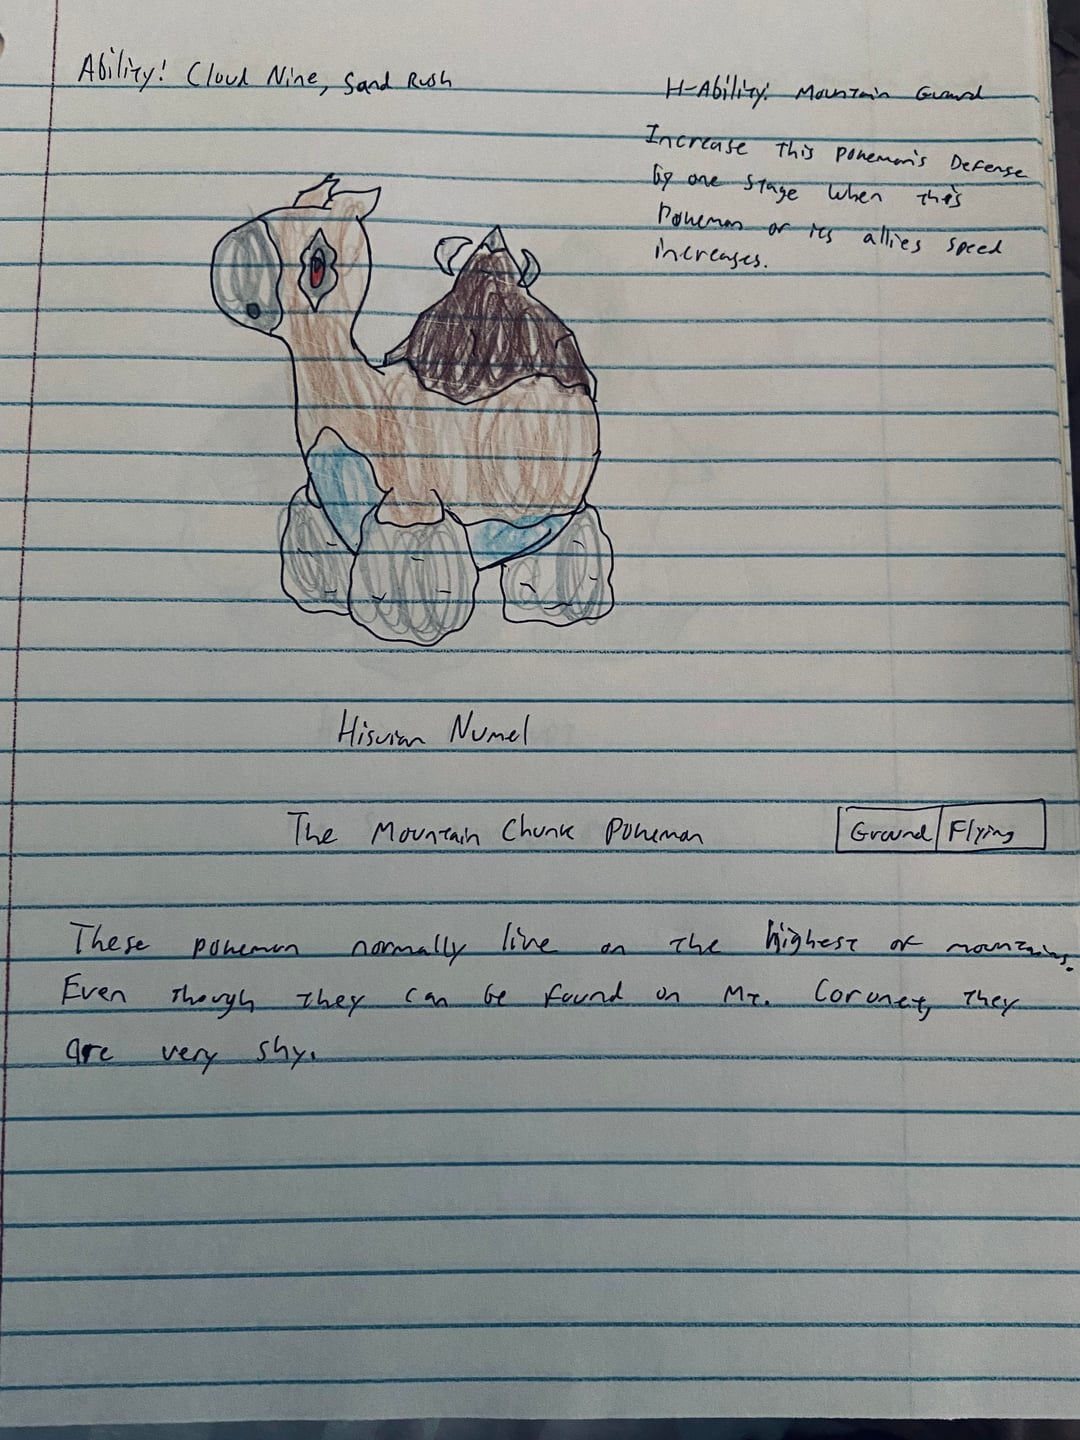 Ability: Cloud Nine, Sand Rush
H-Ability: Mountain Guard
Increase this pokemon's Defense
by one stage when this
Pokemon or its allies speed
increases.
Hisuian Numel
The Mountain Chunk Pokemon
Ground Flying
These pokemon normally live on the highest of mountains.
Even though they can be found on Mt. Coronet, they
are very shy.